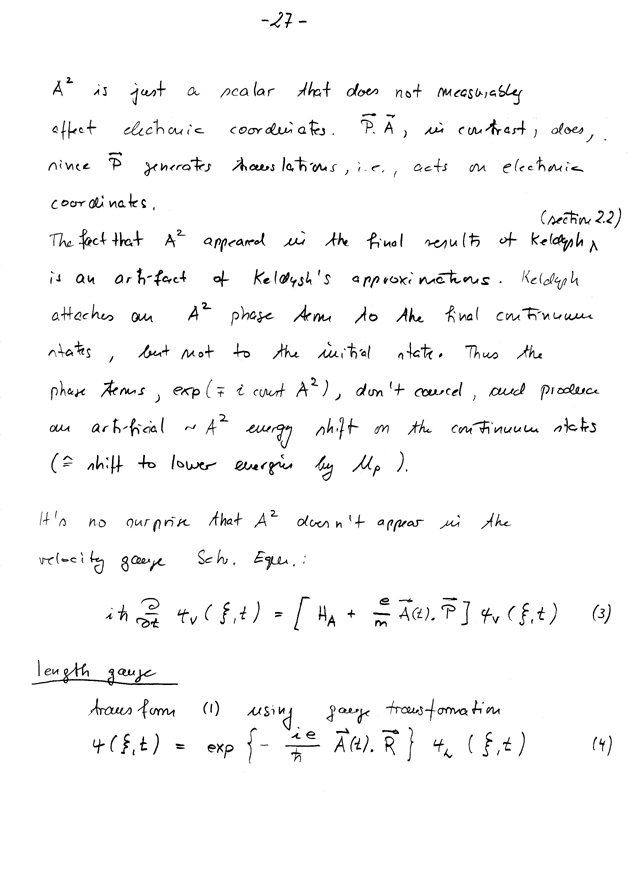 -27-
A² is just a scalar that does not measurably
affect electronic coordinates. P⃗.A⃗, in contrast, does,
since P⃗ generates translations, i.e., acts on electronic
coordinates.
(section 2.2)
The fact that A² appeared in the final results of Keldysh
is an arti-fact of Keldysh's approximations. Keldysh
attaches an A² phase term to the final continuum
states, but not to the initial state. Thus the
phase terms, exp(∓ i const A²), don't cancel, and produce
an artificial ~ A² energy shift on the continuum states
(≙ shift to lower energies by Up).
It's no surprise that A² doesn't appear in the
velocity gauge Sch. Eqn.:
iħ ∂/∂t ψ_V(ξ,t) = [H_A + e/m A⃗(t).P⃗] ψ_V(ξ,t) (3)
length gauge
transform (1) using gauge transformation
ψ(ξ,t) = exp{- ie/ħ A⃗(t).R⃗} ψ_L(ξ,t) (4)